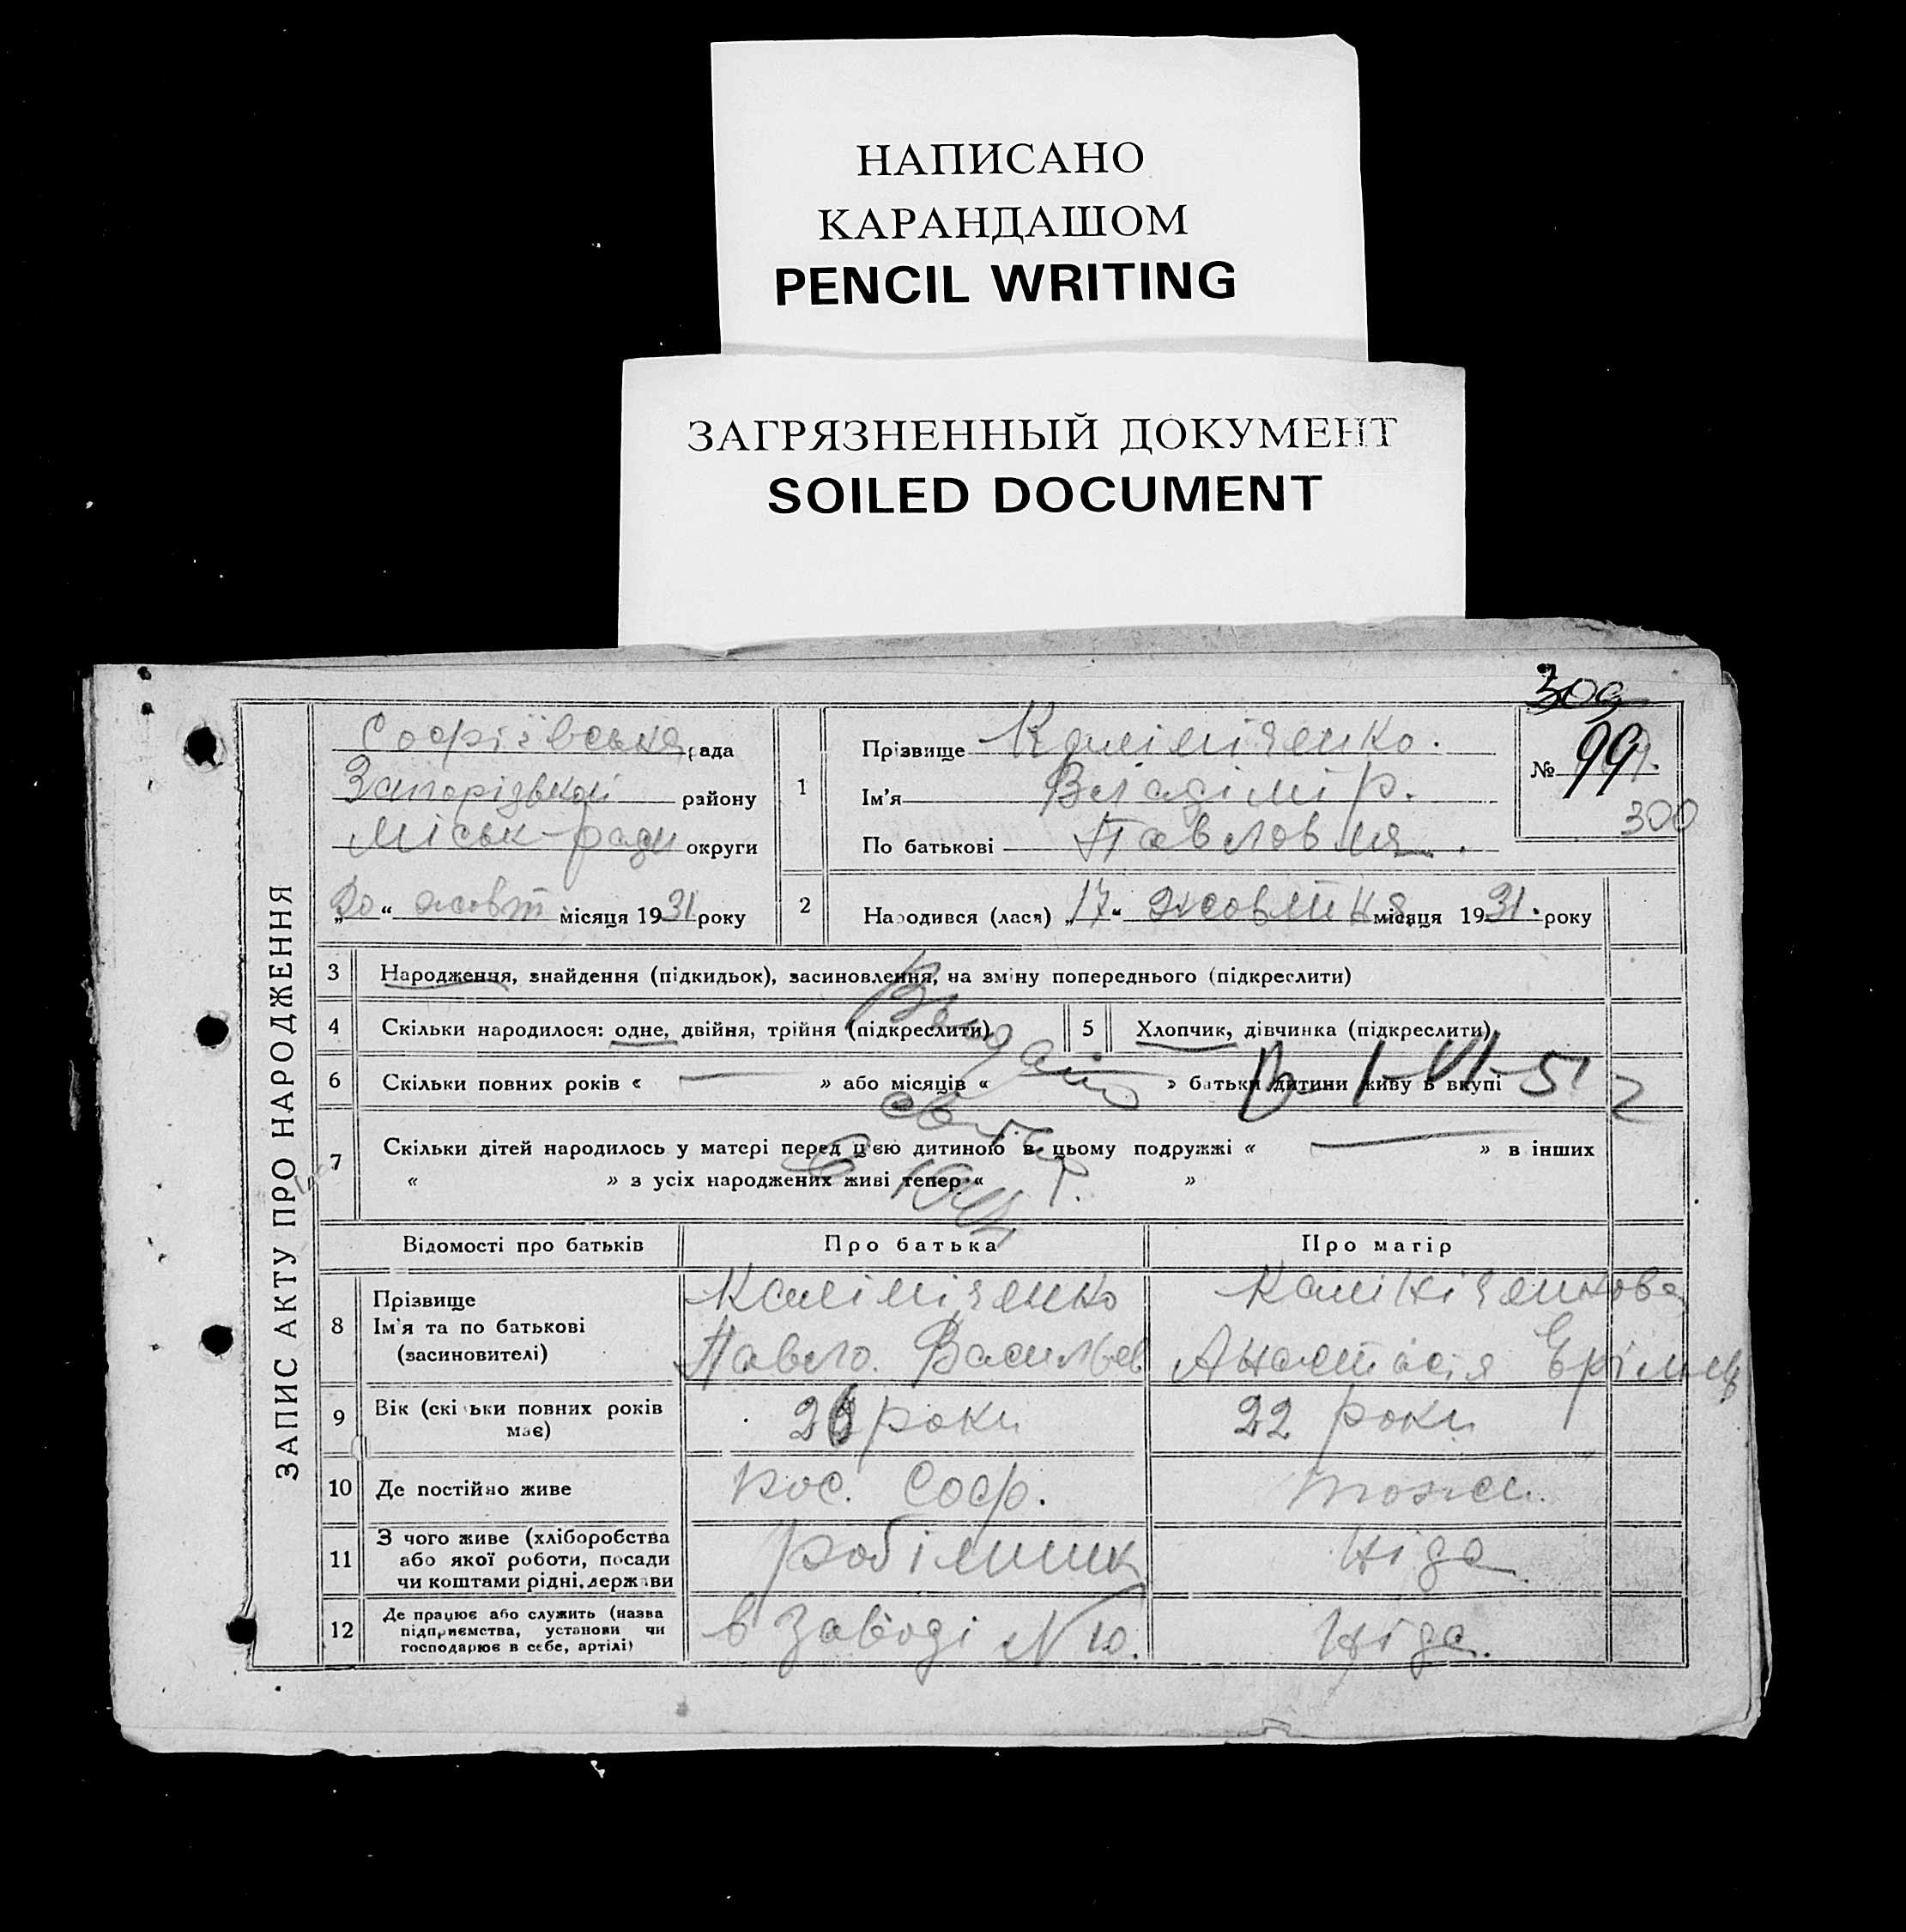 НАПИСАНО
КАРАНДАШОМ
PENCIL WRITING
ЗАГРЯЗНЕННЫЙ ДОКУМЕНТ
SOILED DOCUMENT
309
ЗАПИС АКТУ ПРО НАРОДЖЕННЯ
Софіївська рада
Запорізької району
Міськ-ради округи
„20“ жовт місяця 1931 року
1
Прізвище
Ім'я Владімір.
По батькові Павлович.
№ 99
300
2 Народився (лася) „17“ жовтня місяця 1931. року
3 Народження, знайдення (підкидьок), засиновлення, на зміну попереднього (підкреслити)
4 Скільки народилося: одне, двійня, трійня (підкреслити)
5 Хлопчик, дівчинка (підкреслити)
6 Скільки повних років « — » або місяців « — » батьки дитини живу в вкупі
7 Скільки дітей народилось у матері перед цією дитиною в цьому подружжі « — » в інших
« » з усіх народжених живі тепер « »
Відомості про батьків Про батька Про матір
8 Прізвище
Ім'я та по батькові
(засиновителі)
Павло. Васильев
Анастасія
9 Вік (скільки повних років
має)
26 роки
22 роки
10 Де постійно живе
пос. Соф.
тоже.
11 З чого живе (хліборобства
або якої роботи, посади
чи коштами рідні, держави
робітник
Ніде
12 Де працює або служить (назва
підприємства, установи чи
господарює в себе, артілі)
в заводі N 10.
Ніде.